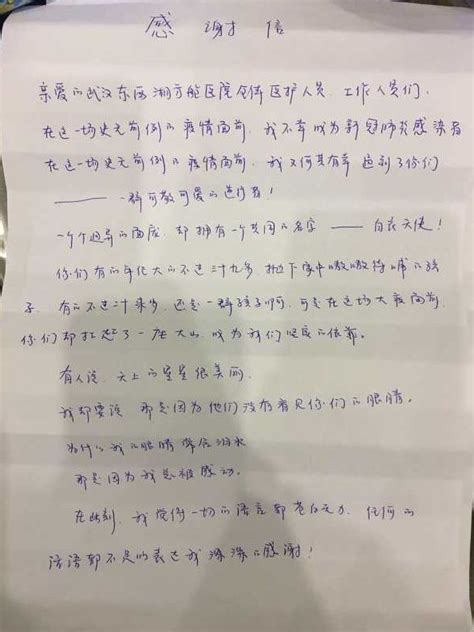 感谢信
亲爱的武汉东西湖方舱医院全体医护人员、工作人员们,
在这一场史无前例的疫情面前,我不幸成为新冠肺炎感染者
在这一场史无前例的疫情面前,我又何其有幸遇到了你们
—— 一群可敬可爱的逆行者!
一个个迥异的面庞,却拥有一个共同的名字 —— 白衣天使!
你们有的年纪大的不过三十九岁,抛下家中嗷嗷待哺的孩
子,有的不过二十来岁,还是一群孩子啊,可是在这场大疫面前,
你们却扛起了一座大山,成为我们坚强的依靠。
有人说,天上的星星很美丽,
我却要说,那是因为他们没有看见你们的眼睛。
为什么我的眼睛常含泪水
那是因为我总被感动。
在此刻,我觉得一切的语言都苍白无力,任何的
话语都不足以表达我深深的感谢!